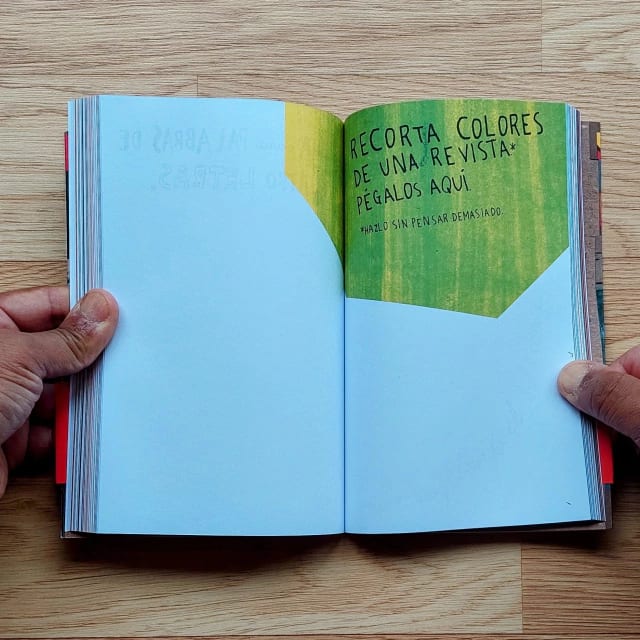 RECORTA COLORES
DE UNA REVISTA*
PÉGALOS AQUÍ.
*HAZLO SIN PENSAR DEMASIADO.